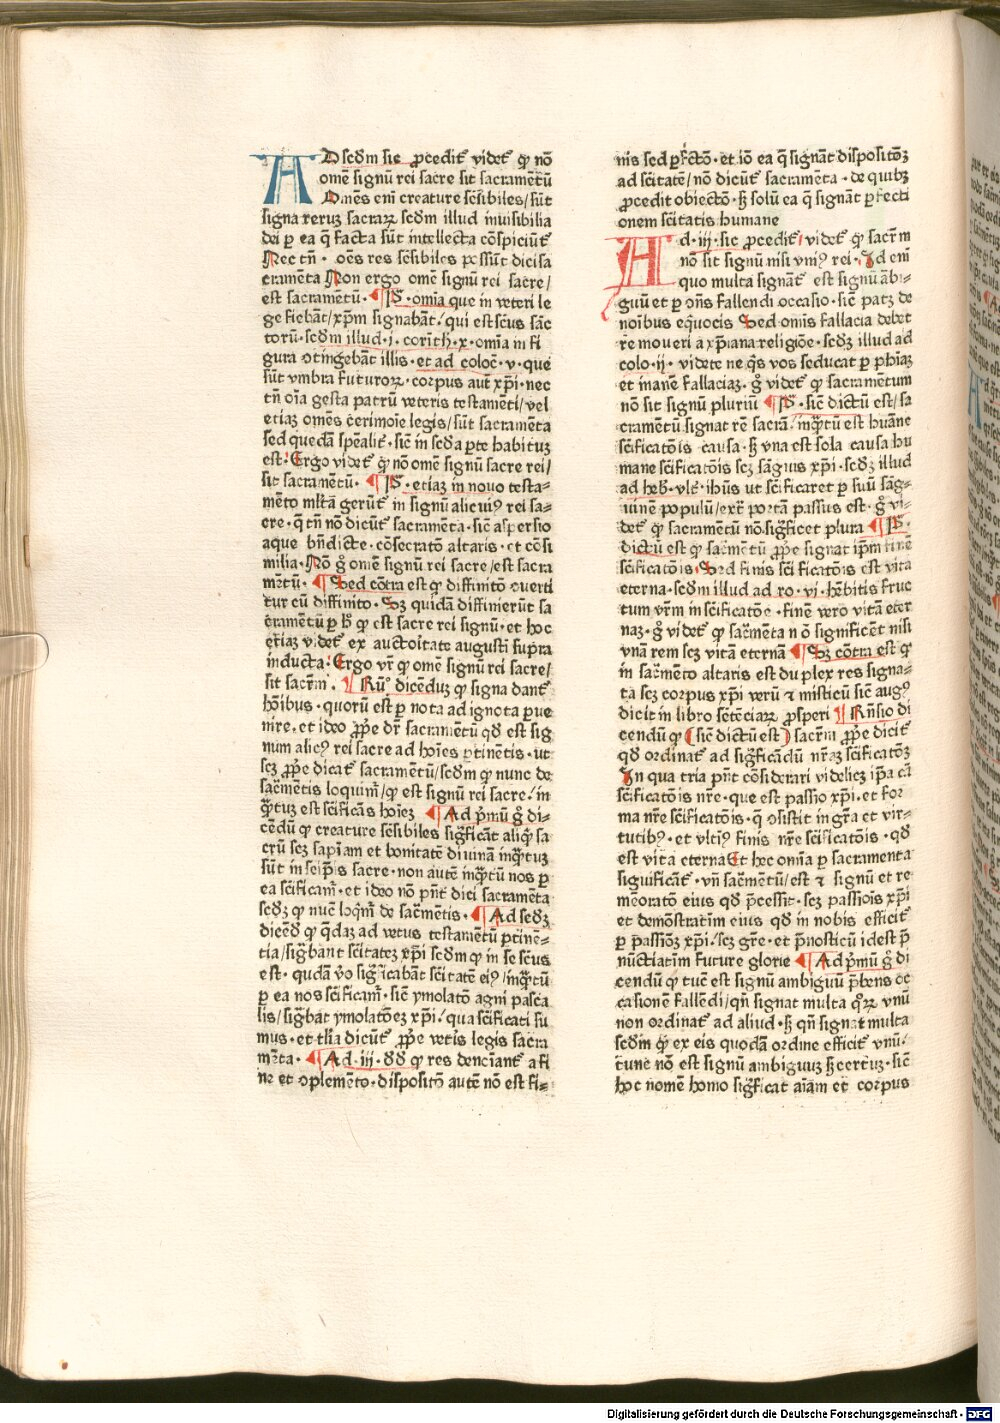 AD scd̄m sic ꝓcedit᷑ videt᷑ ꝙ nō
omē signū rei sacre sit sacramētū
Omēs eni creature sēsibiles/sūt
signa reruꝫ sacraꝝ scd̄m illud inuisibilia
dei ꝑ ea q̄ facta sūt intellecta cōspiciūt᷑
Nec tn̄ · oēs res sēsibiles possūt dici sa
cramēta Non ergo omē signū rei sacre/
est sacramētū · ¶ P̄ · omīa que in veteri le
ge fiebāt/xp̄m signabāt/qui est scūs sāc
torū · scd̄m illud · j · corīth · x · omīa in fi
gura ↄtingebāt illis · et ad coloc̄ · v · que
sūt vmbra futuroꝝ · corpus aut̄ xp̄i · nec
tn̄ oīa gesta patrū veteris testamēti/vel
etiaꝫ omēs cerimoīe legis/sūt sacramēta
sed quedā sp̄ealit᷑ · sic̄ in scd̄a ꝑte habituꝫ
est · Ergo videt᷑ ꝙ nō omē signū sacre rei/
sit sacramētū · ¶ P̄ · etiaꝫ in nouo testa-
mēto ml̄ta gerūt᷑ in signū alicuiꝰ rei sa-
cre · q̄ tn̄ nō dicūt᷑ sacramēta · sic̄ aspersio
aque bn̄dicte · cōsecratō altaris · et cōsi
milia · Nō g̊ omē signū rei sacre/est sacra
mētū · ¶ Sed cōtra est ꝙ diffinitō ↄuerti
tur cū diffinito · Sꝫ quidā diffinierūt sa
cramētū ꝑ hº ꝙ est sacre rei signū · et hoc
etiaꝫ videt᷑ ex auctoītate augustī supra
inducta · Ergo vr̄ ꝙ omē signū rei sacre/
sit sacrm̄ · ¶ Rn̄º dicēduꝫ ꝙ signa dant᷑
hōibus · quorū est ꝑ nota ad ignota ꝑue
nire · et ideo ꝓpe dr̄ sacramētū qd̄ est sig
num alicꝰ rei sacre ad hoīes ꝑtinētis · ut
scꝫ ꝓpe dicat᷑ sacramētū/scd̄m ꝙ nunc de
sac̄mētis loquim᷑/ꝙ est signū rei sacre/in
q̄ꝫtuꝫ est sc̄ificās hoīeꝫ ¶ Ad p̄mū g̊ di-
cēdū ꝙ creature sēsibiles sig̅ficāt aliqº sa
crū scꝫ sapīam et bonitatē diuinā inq̄ꝫtuꝫ
sūt in seip̄is sacre · non autē inq̄ꝫtū nos ꝑ
ea sc̄ificam᷑ · et ideo nō pn̄t dici sacramēta
scd̄ꝫ ꝙ nūc loq̄m᷑ de sac̄mētis · ¶ Ad scd̄ꝫ
dicēdº ꝙ q̄daꝫ ad vetus testamētū ꝑtinē-
tia/sig̅bant sc̄itateꝫ xp̄i scd̄m ꝙ in se scūs
est · qudā v̊o sig̅icabāt sc̄itatē eiꝰ/inq̄ꝫtū
ꝑ ea nos sc̄ificam᷑ · sic̄ ymolatō agni pasca
lis/sig̅bat ymolatōeꝫ xp̄i/qua sc̄ificati su
mus · et tlia dicūt᷑ ꝓpe vetis legis sacra
mēta · ¶ Ad · iij · dd̄ ꝙ res denoīant᷑ a fi
ne et ↄplemēto · dispositō autē nō est fi-
nis sed ꝑfectō · et iō ea q̄ signāt dispositōꝫ
ad sc̄itatē/nō dicūt᷑ sacramēta · de quibꝫ
ꝓcedit obiectō · ꝫ solū ea q̄ signāt ꝑfecti
onem sc̄itatis humane
Ad · iij · sic ꝓcedit᷑/videt᷑ ꝙ sacrm̄
nō sit signū nisi vniꝰ rei · Id eni
quo multa signāt᷑ est signū ābi-
guū et ꝑ ↄn̄s fallendi occasio · sic̄ patꝫ de
noībus eq̄uocis Sed omīs fallacia debet
remoueri a xp̄iana religiōe · scd̄ꝫ illud ad
colo · ij · videte ne q̄s vos seducat ꝑ ph̄iaꝫ
et inanē fallaciaꝫ · g̊ videt᷑ ꝙ sacramētum
nō sit signū pluriū ¶ P̄ · sic̄ dictū est/sa
cramētū signat rē sacrā/inq̄ꝫtū est huāne
sc̄ificatōis causa · ꝫ vna est sola causa hu
mane sc̄ificatōis scꝫ sāguis xp̄i · scd̄ꝫ illud
ad heb̄ · vlt̄ · ih̄us ut sc̄ificaret ꝑ suū sāg-
uinē populū/extᷓ portā passus est · g̊ vi-
det᷑ ꝙ sacramētū nō sig̅ficet plura ¶ P̄ ·
dictū est ꝙ sac̄mētū ꝓpe signat ip̄m finē
sc̄ificatōis · Sed finis sc̄ificatōis est vita
eterna · scd̄m illud ad ro · vj · hēbitis fruc
tum vr̄m in sc̄ificatōe · finē vero vitā eter
naꝫ · g̊ videt᷑ ꝙ sac̄mēta nō significēt nisi
vnā rem scꝫ vitā eternā ¶ Sꝫ cōtra est ꝙ
in sac̄mēto altaris est duplex res signa-
ta scꝫ corpus xp̄i verū ⁊ misticū sic̄ augꝰ
dicit in libro sētēciaꝝ ꝓsperi ¶ Rn̄sio di
cendū ꝙ (sic̄ dictū est) sacrm̄ ꝓpe dicit᷑
qd̄ ordinat᷑ ad sig̅ficādū nr̄aꝫ sc̄ificatōꝫ
In qua tria pn̄t cōsiderari videlicꝫ ip̄a cā
sc̄ificatōis nr̄e · que est passio xp̄i · et for
ma nr̄e sc̄ificatōis · q̄ ↄsistit in gr̄a et vir-
tutibꝰ · et vltiꝰ finis nr̄e sc̄ificatōis · qd̄
est vita eterna Et hec omīa ꝑ sacramenta
significāt᷑ · vn̄ sac̄mētū/est ⁊ signū et re
meoratō eius qd̄ p̄cessit · scꝫ passiōis xp̄i
et demōstratīm eius qd̄ in nobis efficit᷑
ꝑ passiōꝫ xp̄i/scꝫ gr̄e · et p̄nosticū id est p̄
nūctiatīm future glorie ¶ Ad p̄mū g̊ di
cendū ꝙ tūc est signū ambiguū p̄bens oc
casionē fallēdi/qn̄ signat multa qºꝝ vnū
non ordinat᷑ ad aliud · ꝫ qn̄ signat multa
scd̄m ꝙ ex eis quodā ordine efficit᷑ vnū/
tūnc nō est signū ambiguuꝫ ꝫ certuꝫ · sic̄
hoc nomē homo sig̅ficat aīam et corpus
Digitalisierung gefördert durch die Deutsche Forschungsgemeinschaft - DFG